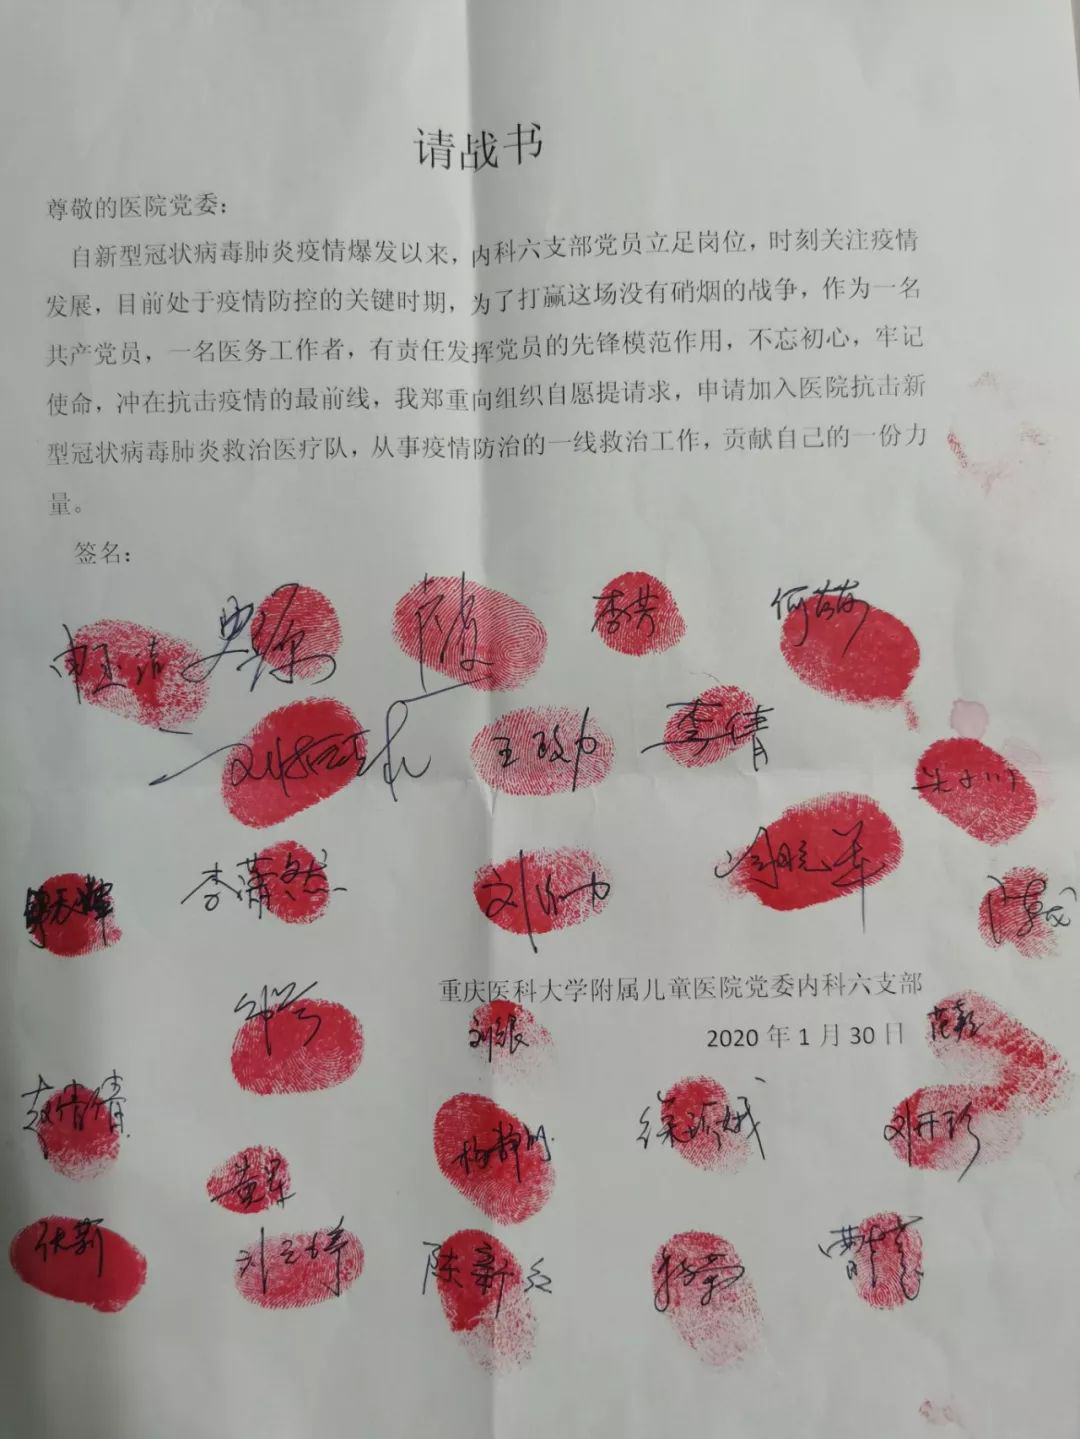 请战书
尊敬的医院党委：
自新型冠状病毒肺炎疫情爆发以来，内科六支部党员立足岗位，时刻关注疫情
发展，目前处于疫情防控的关键时期，为了打赢这场没有硝烟的战争，作为一名
共产党员，一名医务工作者，有责任发挥党员的先锋模范作用，不忘初心，牢记
使命，冲在抗击疫情的最前线，我郑重向组织自愿提请求，申请加入医院抗击新
型冠状病毒肺炎救治医疗队，从事疫情防治的一线救治工作，贡献自己的一份力
量。
签名：
李芳
李倩
李萧然
重庆医科大学附属儿童医院党委内科六支部
2020年1月30日
赵倩倩
刘开珍
陈新红